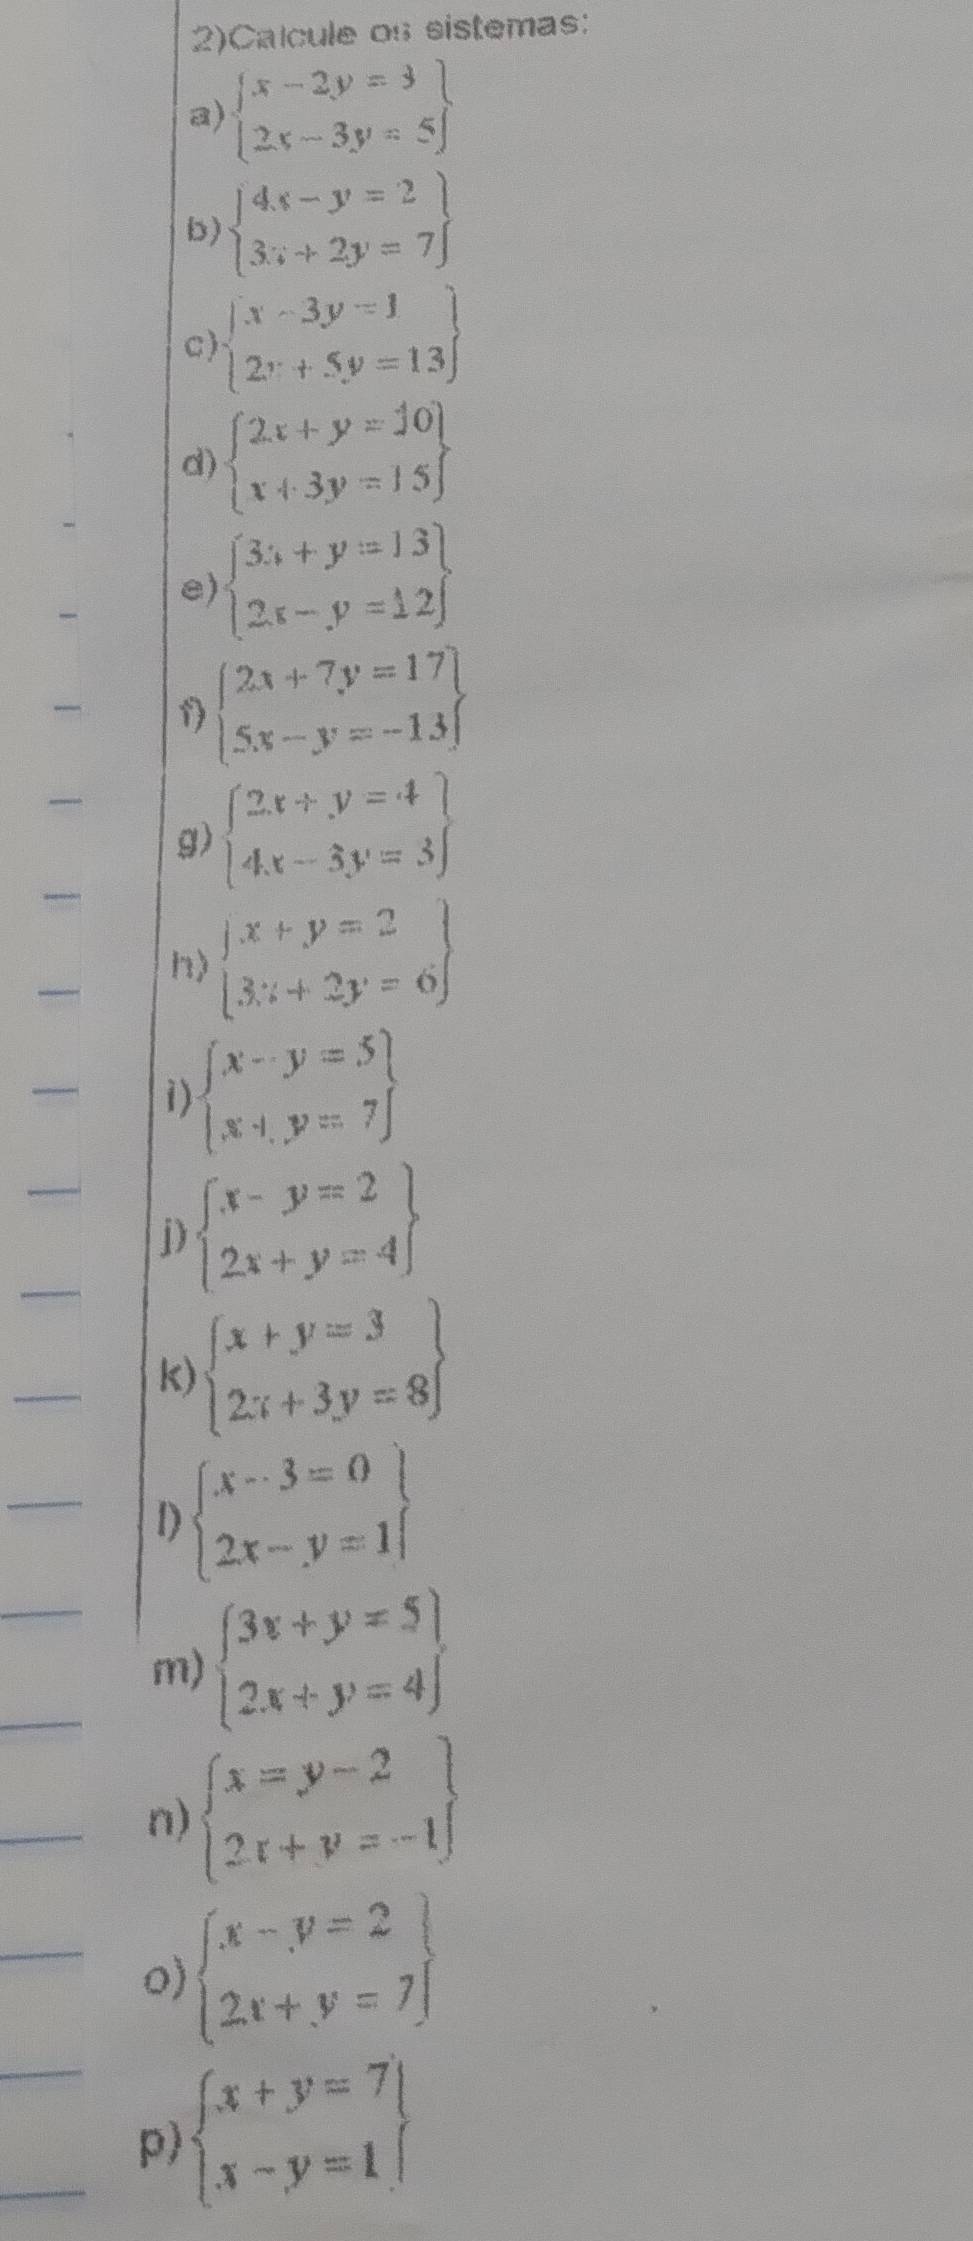 2)Calcule os sistemas:
a) { x - 2y = 3
2x - 3y = 5 }
b) { 4x - y = 2
3x + 2y = 7 }
c) { x - 3y = 1
2x + 5y = 13 }
d) { 2x + y = 10
x + 3y = 15 }
e) { 3x + y = 13
2x - y = 12 }
f) { 2x + 7y = 17
5x - y = -13 }
g) { 2x + y = 4
4x - 3y = 3 }
h) { x + y = 2
3x + 2y = 6 }
i) { x - y = 5
x + y = 7 }
j) { x - y = 2
2x + y = 4 }
k) { x + y = 3
2x + 3y = 8 }
l) { x - 3 = 0
2x - y = 1 }
m) { 3x + y = 5
2x + y = 4 }
n) { x = y - 2
2x + y = -1 }
o) { x - y = 2
2x + y = 7 }
p) { x + y = 7
x - y = 1 }